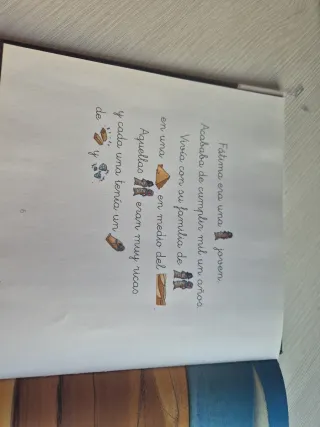 Fátima era una joven.
Acababa de cumplir mil un años.
Vivía con su familia de
en una en medio del
Aquellas eran muy ricas
y cada una tenía un
de y